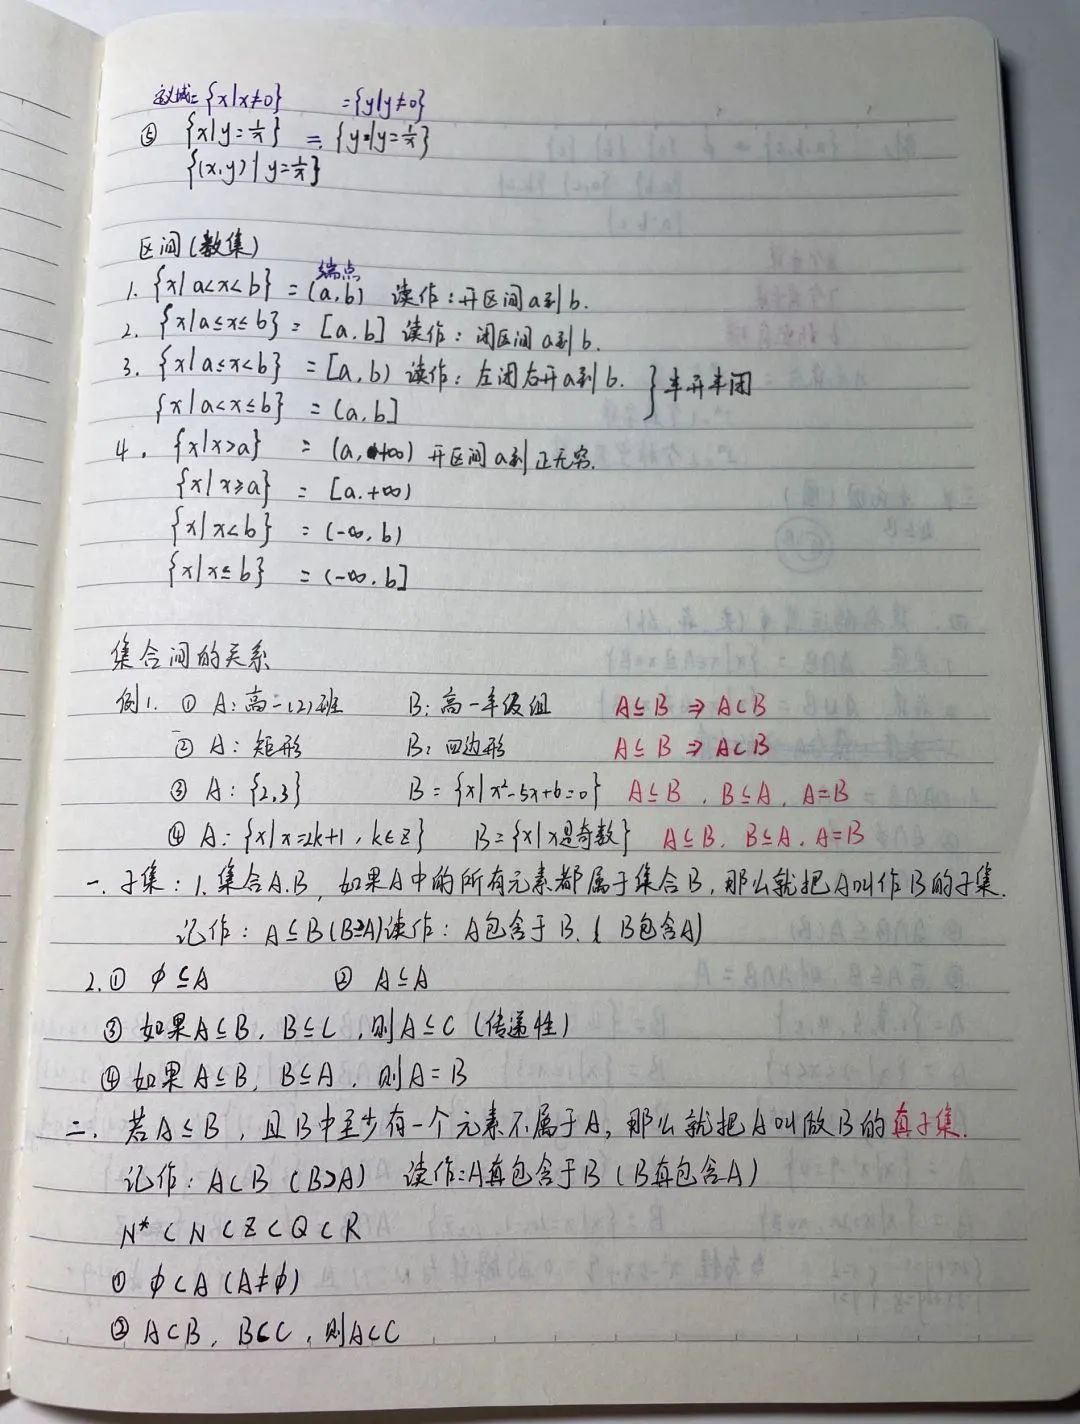 定义域={x|x≠0} ={y|y≠0}
⑤ {x|y=1/x} = {y|y=1/x}
{(x,y)|y=1/x}
区间(数集)
端点
1. {x|a<x<b} = (a,b) 读作:开区间a到b.
2. {x|a≤x≤b} = [a,b] 读作:闭区间a到b.
3. {x|a≤x<b} = [a,b) 读作:左闭右开a到b. }半开半闭
{x|a<x≤b} = (a,b]
4. {x|x>a} = (a,+∞) 开区间a到正无穷.
{x|x≥a} = [a.+∞)
{x|x<b} = (-∞,b)
{x|x≤b} = (-∞.b]
集合间的关系
例1. ① A:高一(2)班 B:高一年级组 A⊆B ⇒ A⊂B
② A:矩形 B:四边形 A⊆B ⇒ A⊂B
③ A:{2,3} B={x|x²-5x+6=0} A⊆B . B⊆A . A=B
④ A:{x|x=2k+1,k∈Z} B={x|x是奇数} A⊆B. B⊆A. A=B
一.子集:1.集合A.B,如果A中的所有元素都属于集合B,那么就把A叫作B的子集.
记作:A⊆B(B⊇A)读作:A包含于B.(B包含A)
2.① ϕ⊆A ② A⊆A
③ 如果A⊆B, B⊆C,则A⊆C(传递性)
④ 如果A⊆B, B⊆A, 则A=B
二. 若A⊆B,且B中至少有一个元素不属于A,那么就把A叫做B的真子集.
记作:A⊂B (B⊃A) 读作:A真包含于B(B真包含A)
N*⊂N⊂Z⊂Q⊂R
① ϕ⊂A(A≠ϕ)
② A⊂B, B⊂C,则A⊂C